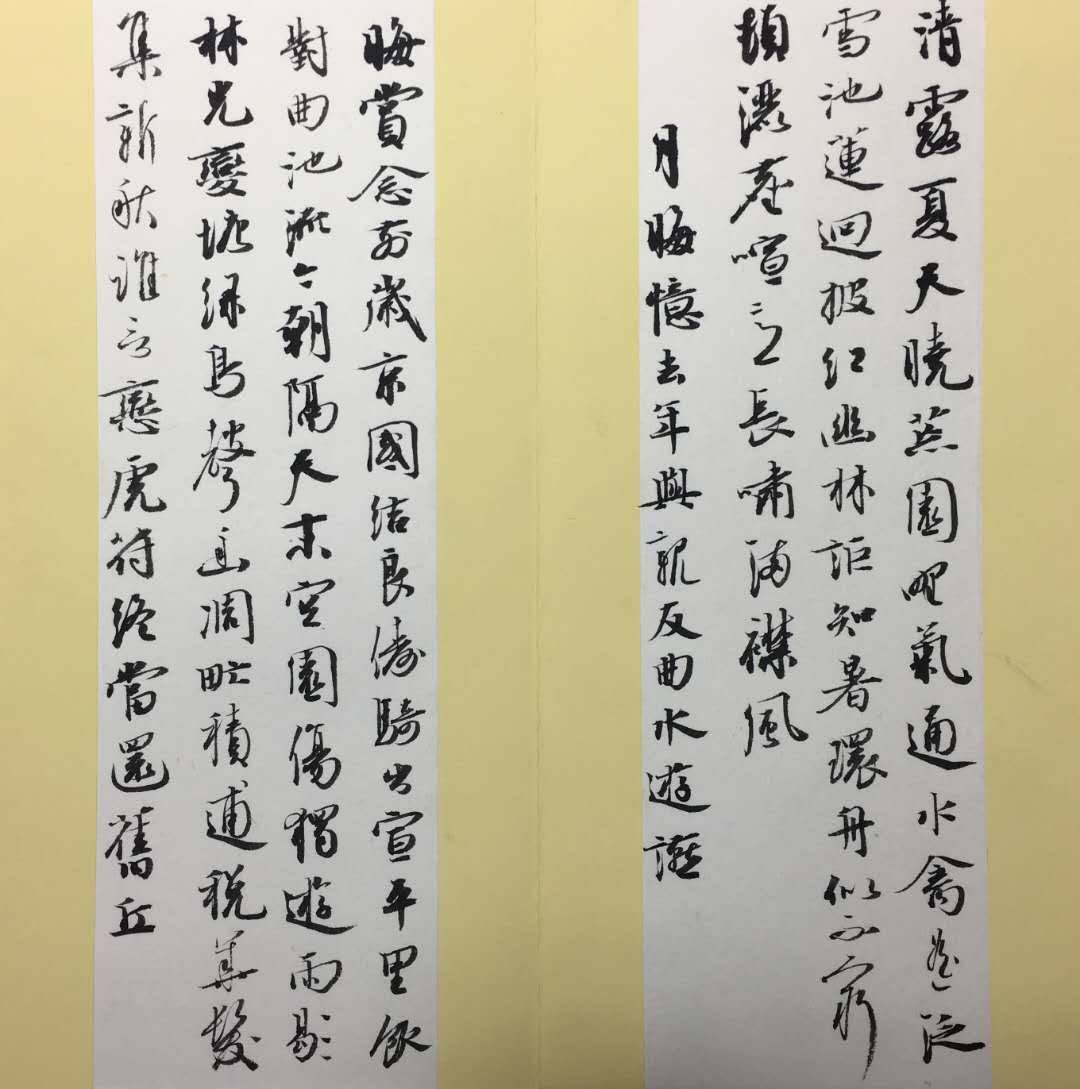 清露夏天曉荒園野氣通水禽遙泛
雪池蓮迥披紅幽林詎知暑環舟似不窮
頓灑塵喧意長嘯滿襟風
月晦憶去年與親友曲水遊讌
晦賞念前歲京國結良儔騎出宣平里飲
對曲池流今朝隔天末空園傷獨遊雨歇
林光變塘綠鳥聲幽凋甿積逋稅華鬢
集新秋誰言戀虎符終當還舊丘